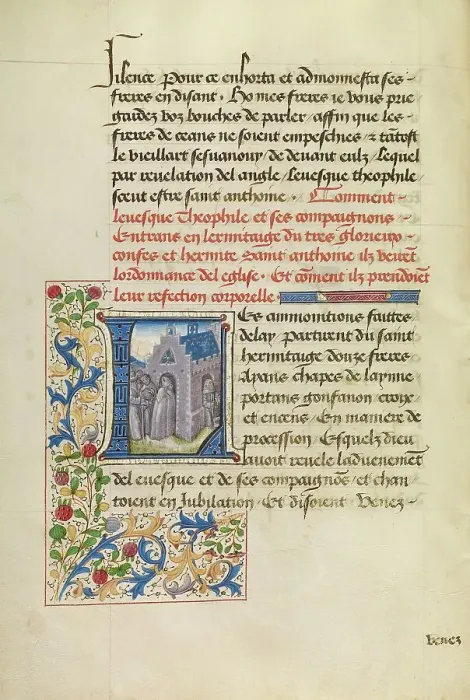 Silence Pour ce enhorta et admonnesta ses
freres en disant · Ho mes freres ie vous prie
gardez voz bouches de parler / affin que les
freres de ceans ne soient empeschies ⁊ tātost
le vieillart sesvanouy / de devant eulz / Lequel
par revelation del angle / levesque theophile
sceut estre saint anthoine · Comment
levesque Theophile et ses compaignons
Entrans en lermitaige du tres glorieux
confes et hermite Saint anthoine ilz veirēt
lordonnance del eglise · Et cōment ilz prendoiēt
leur refection corporelle ·
Es ammonitions faittes
delay partirent du saint
hermitaige douze freres
Ayans chapes de layme
portans gonfanon croix
et encens / En maniere de
procession Esquelz dieu
avoit revele ladvenemēt
del evesque et de ses compaignōs et chan
toient en Jubilation · Et disoient Venez
Venez